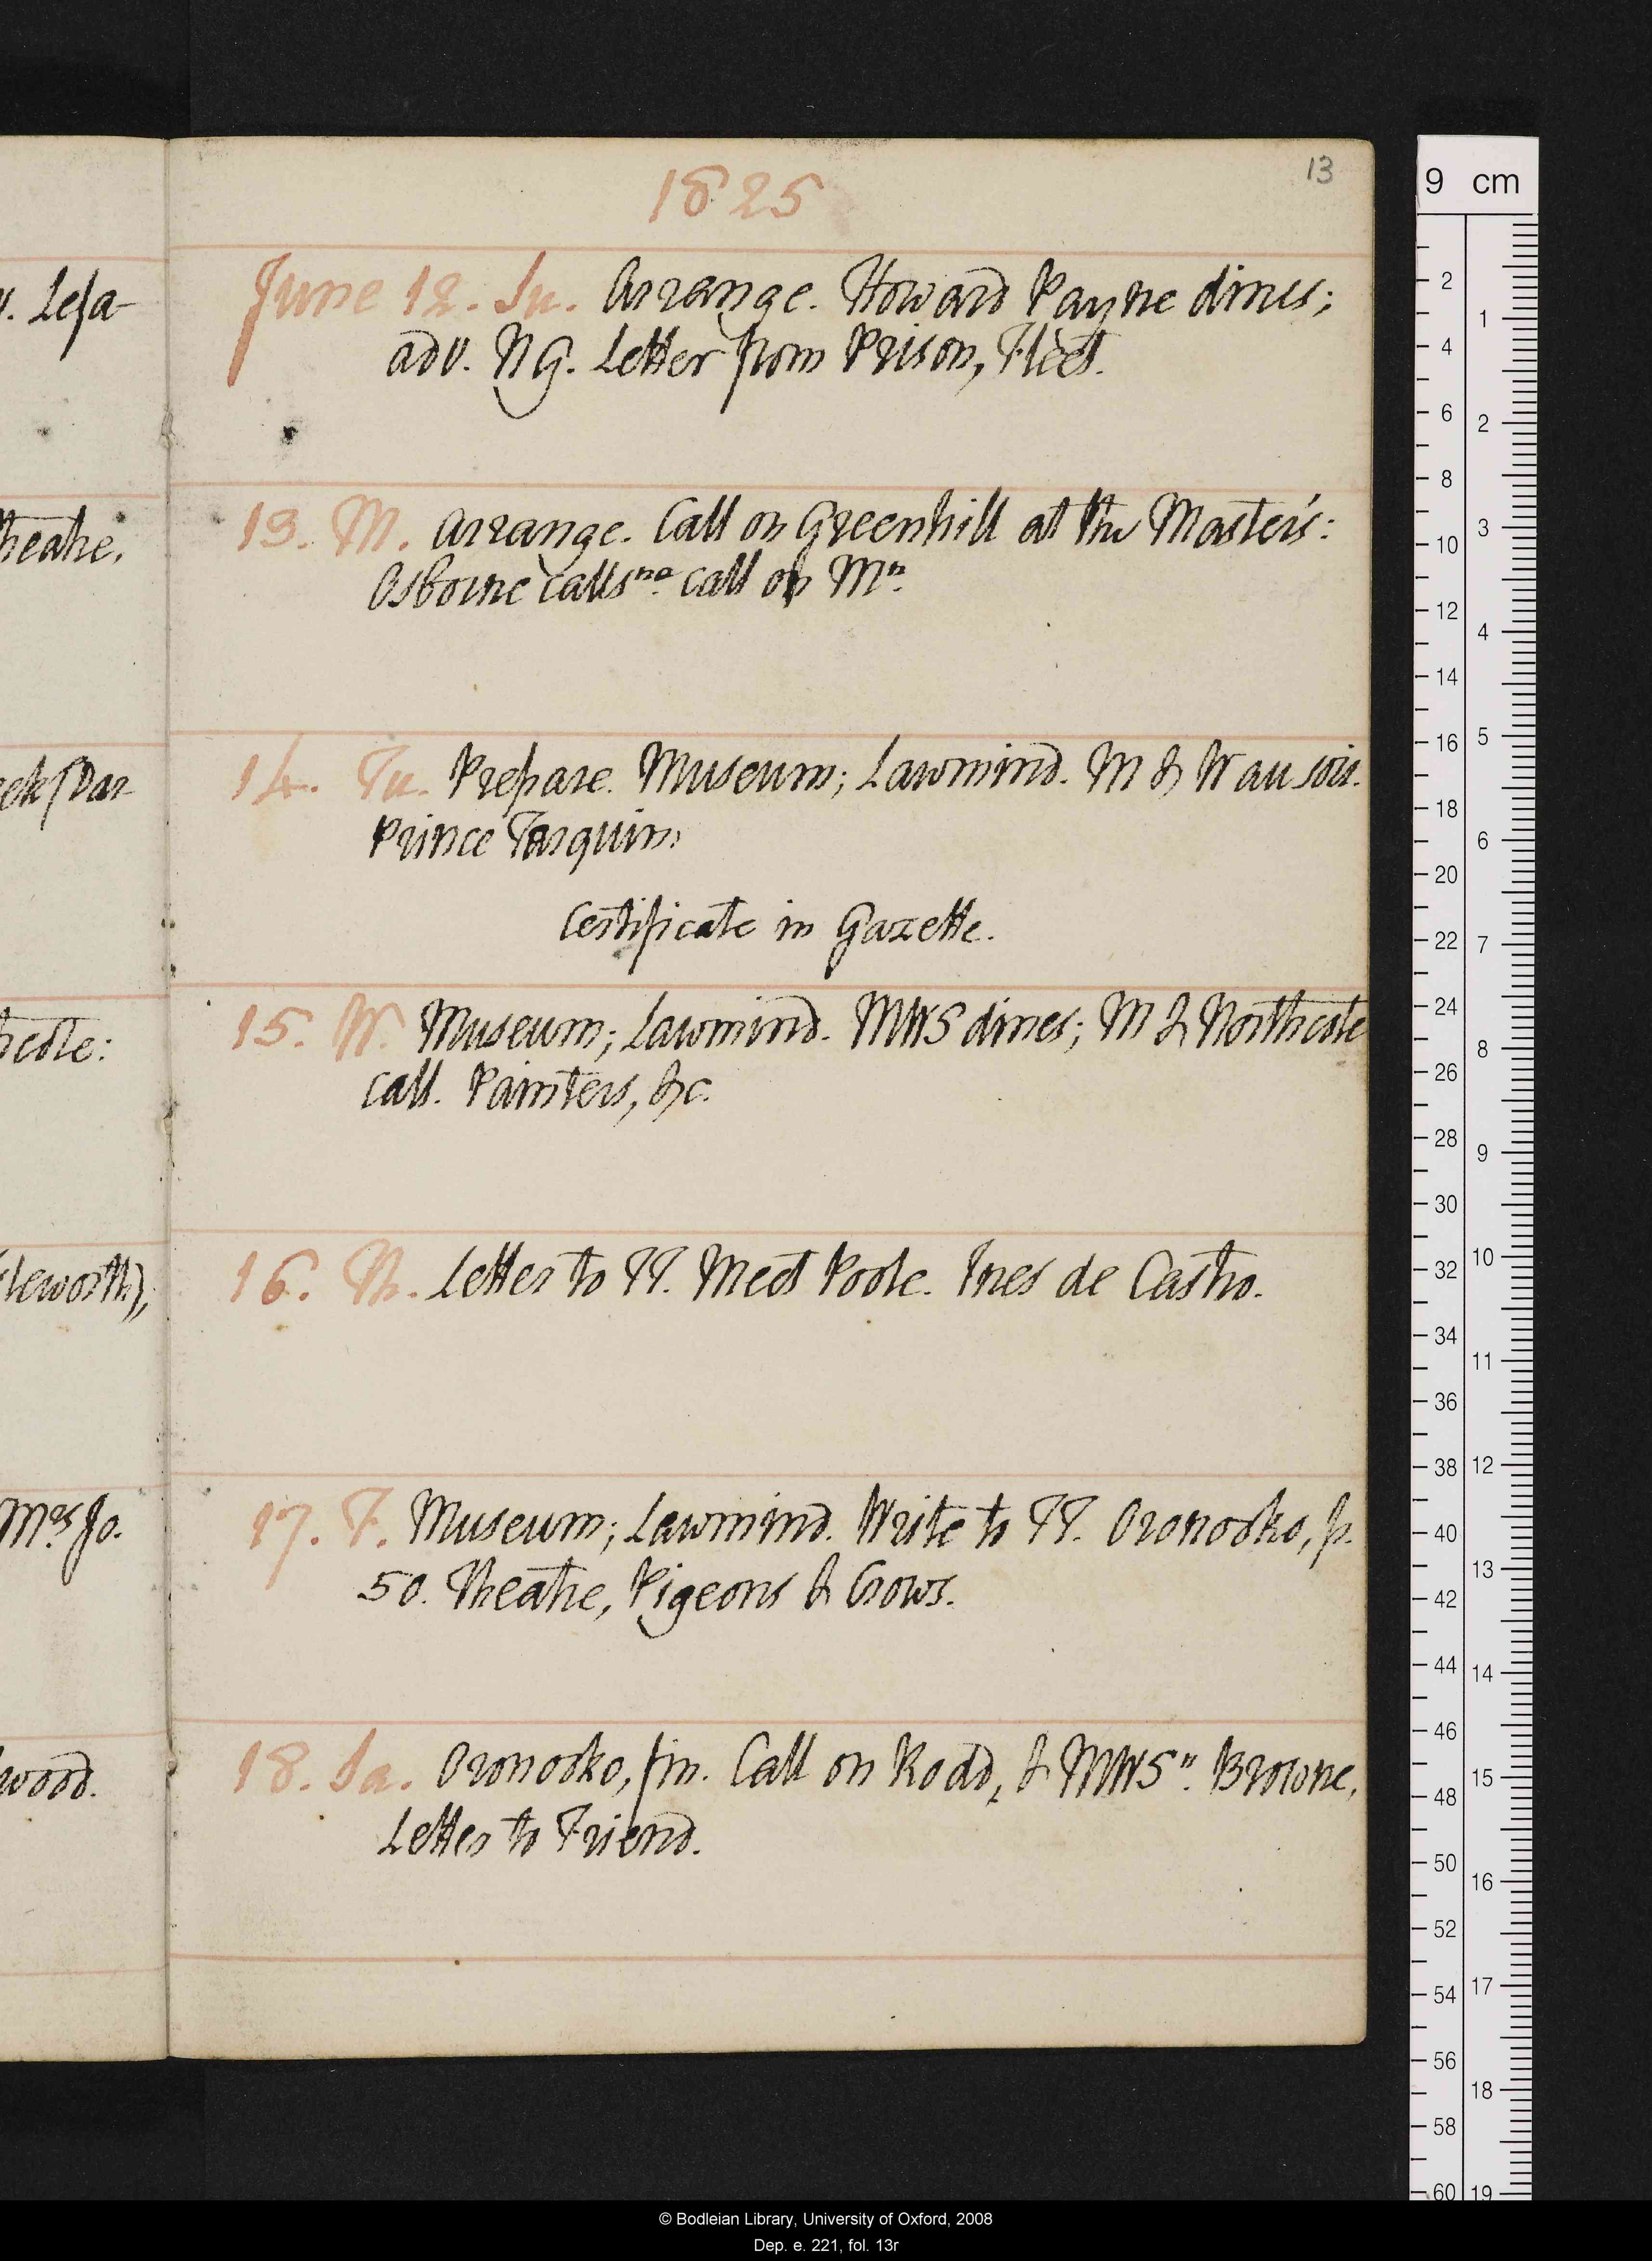 13
1825
June 12. Su. Arrange. Howard Payne dines;
adv. NG. Letter from Prison, Fleet.
13. M. Arrange. Call on Greenhill at the Master's:
Osborne calls na. call on Mn.
14. Tu. Prepare. Museum; Lawmind. M & W au soir.
Prince Tarquin
Certificate in Gazette.
15. W. Museum; Lawmind. MWS dines; M & Northcote
call. Painters, &c.
16. Th. Letter to TT. Meet Poole. Ines de Castro.
17. F. Museum; Lawmind. Write to TT. Oronooko, p.
50. Theatre, Pigeons & Crows.
18. Sa. Oronooko, fin. Call on Rodd, & MWS n. Browne.
Letter to Friend.
v. Lesa-
heatre.
ek/Dar
hcote:
leworth),
Mrs Jo.
wood.
9 cm
2
4
6
8
10
12
14
16
18
20
22
24
26
28
30
32
34
36
38
40
42
44
46
48
50
52
54
56
58
60
1
2
3
4
5
6
7
8
9
10
11
12
13
14
15
16
17
18
19
© Bodleian Library, University of Oxford, 2008
Dep. e. 221, fol. 13r